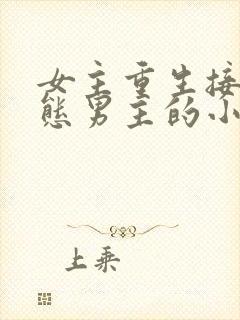 女主重生接
态男主的小
上乘